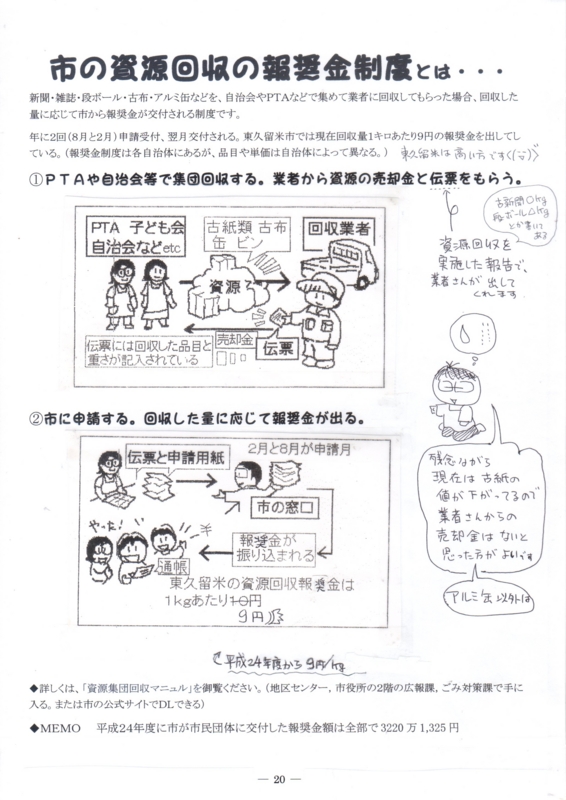 市の資源回収の報奨金制度とは・・・
新聞・雑誌・段ボール・古布・アルミ缶などを、自治会やPTAなどで集めて業者に回収してもらった場合、回収した
量に応じて市から報奨金が交付される制度です。
年に2回(8月と2月)申請受付、翌月交付される。東久留米市では現在回収量1キロあたり9円の報奨金を出してし
ている。(報奨金制度は各自治体にあるが、品目や単価は自治体によって異なる。)
東久留米は高い方です
①PTAや自治会等で集団回収する。業者から資源の売却金と伝票をもらう。
古新聞○kg
段ボール△kg
とか書いて
ある
資源回収を
実施した報告で、
業者さんが出して
くれます
PTA 子ども会
自治会などetc
古紙類 古布
缶 ビン
回収業者
資源
売却金
伝票
伝票には回収した品目と
重さが記入されている
②市に申請する。回収した量に応じて報奨金が出る。
伝票と申請用紙
2月と8月が申請月
市の窓口
やった!
報奨金が
振り込まれる
通帳
東久留米の資源回収報奨金は
1kgあたり10円
9円
残念ながら
現在は古紙の
値が下がってるので
業者さんからの
売却金はないと
思った方がよいです
アルミ缶以外は
平成24年度から9円/kg
◆詳しくは、「資源集団回収マニュル」を御覧ください。(地区センター, 市役所の2階の広報課, ごみ対策課で手に
入る。または市の公式サイトでDLできる)
◆MEMO 平成24年度に市が市民団体に交付した報奨金額は全部で3220万1,325円
— 20 —